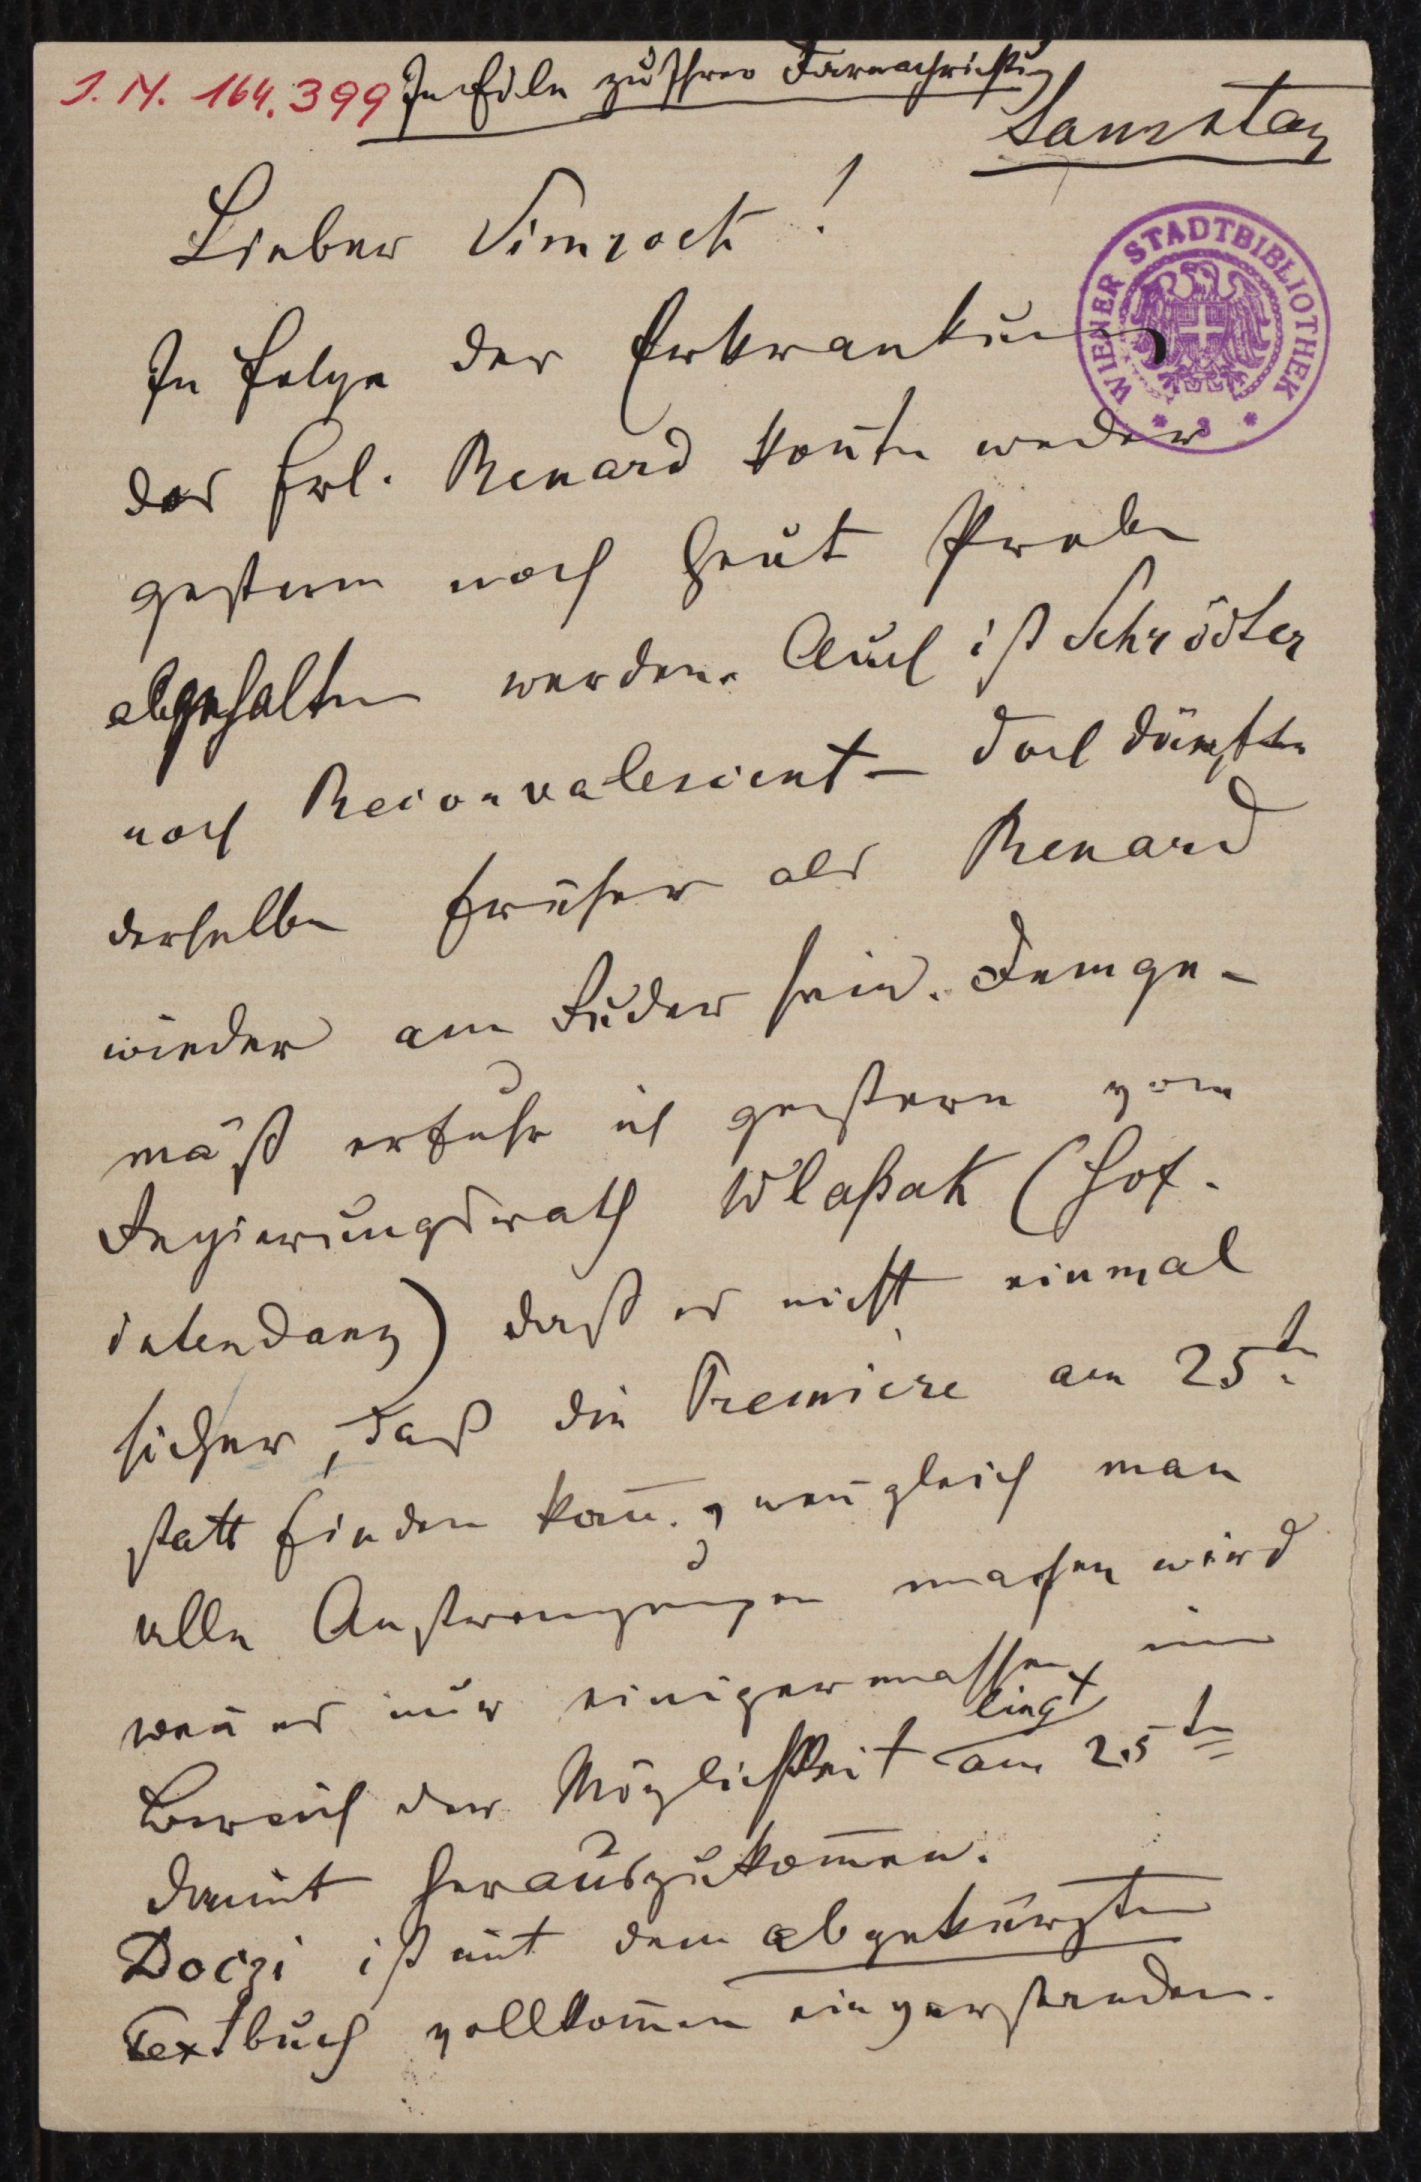 J. N. 164.399
In Eile zu Ihrer Darnachrichtung
Samstag
Lieber Simrock!
WIENER STADTBIBLIOTHEK
* 3 *
In Folge der Erkrankung
des Frl. Renard kon̄te weder
gestern noch heut Probe
abgehalten werden. Auch ist Schrödter
noch Reconvalescent – doch dürfte
derselbe früher als Renard
wieder am Ruder sein. Demge-
mäß erfuhr ich gestern vom
Regierungsrath Wlaßak (Hof-
intendanz) daß es nicht einmal
sicher, daß die Premiere am 25t.
statt finden kan̄., wen̄gleich man
alle Anstrengungen machen wird
wen̄ es nur einigermassen im
Bereich der Möglichkeit liegt am 25t
damit herauszukom̄en.
Doczi ist mit dem abgekürzten
Textbuch vollkom̄en einverstanden.